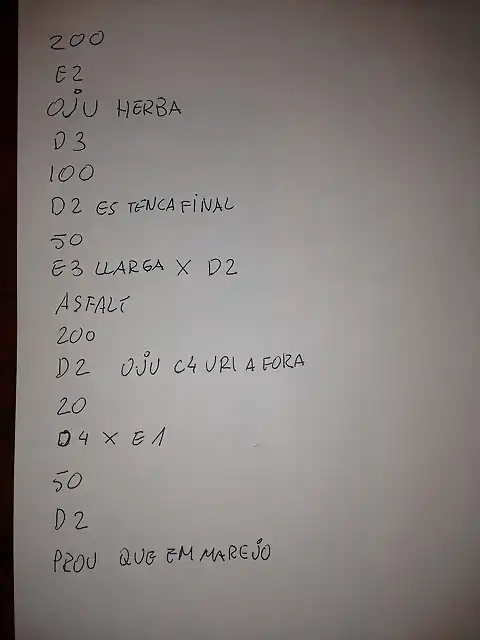 200
E2
OJU HERBA
D3
100
D2 ES TENCA FINAL
50
E3 LLARGA X D2
ASFALT
200
D2 OJU C4 URI A FORA
20
D4 X E1
50
D2
PROU QUE EM MAREJO